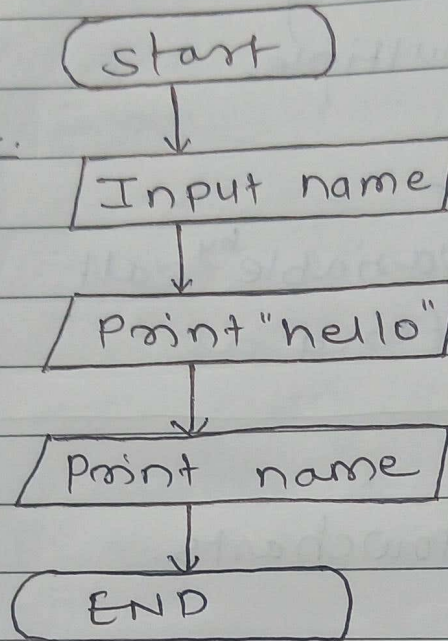 Start
Input name
Print "hello"
Print name
END